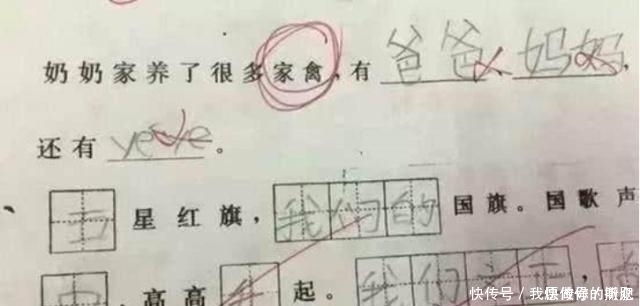 奶奶家养了很多家禽,有爸爸、妈妈,
还有yeye。
五星红旗,我们的国旗。国歌声
中,高高升起。我们立正,
快传号/